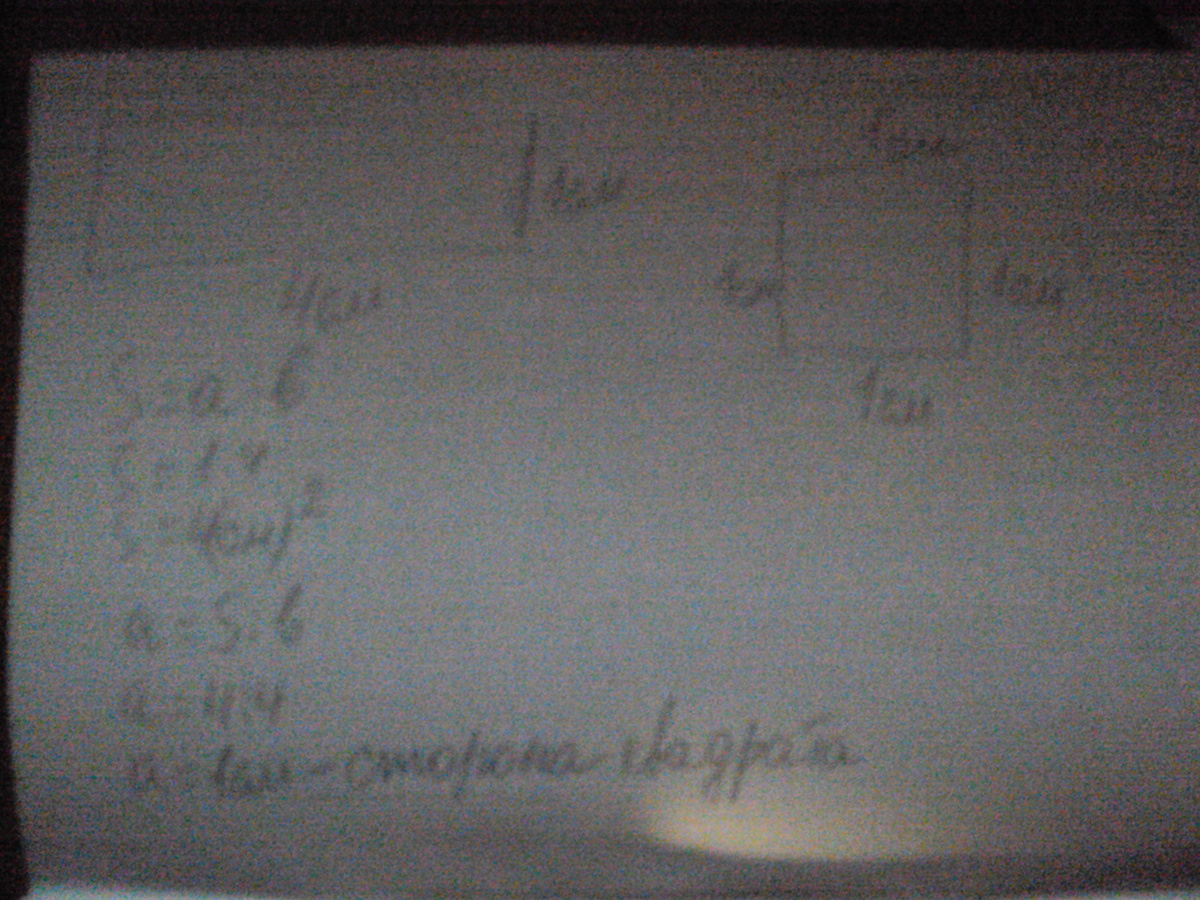 1см
1см
1см
1см
4см
1см
S = a · b
S = 1 · 4
S = 4(см)²
a = S : b
a = 4 : 4
a = 1см - сторона квадрата